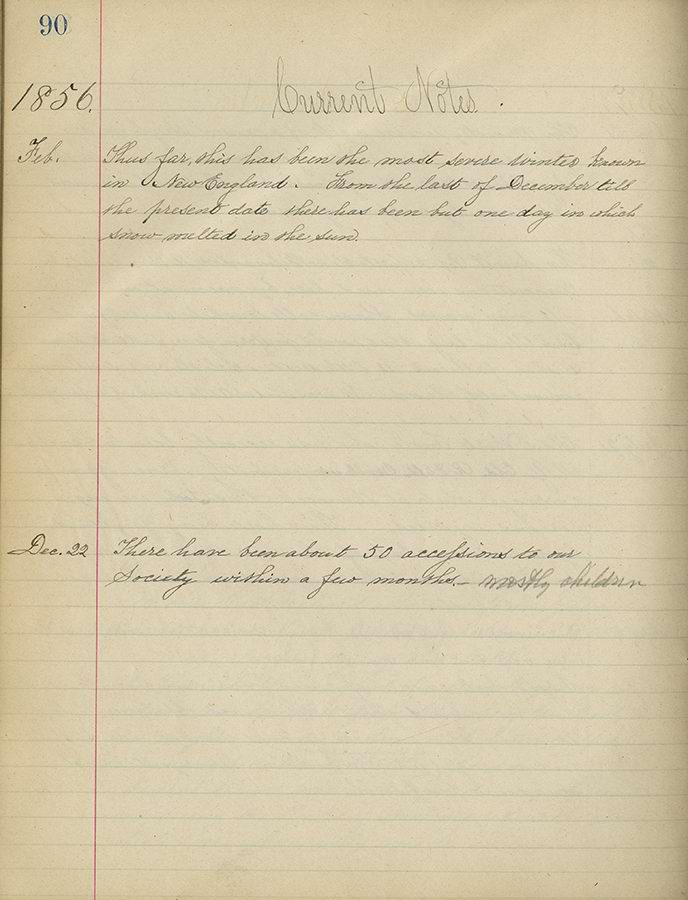 90
1856.
Current Notes.
Feb. Thus far, this has been the most severe winter known
in New England. From the last of December till
the present date there has been but one day in which
snow melted in the sun.
Dec. 22 There have been about 50 accessions to our
Society within a few months. – mostly children